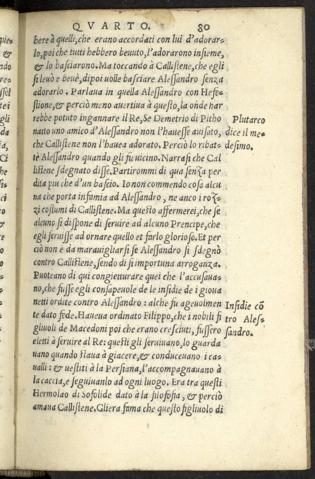 QVARTO. 80
bere à quelli, che erano accordati con lui d'adorar-
lo, poi che tutti hebbero beuuto, l'adorarono insieme,
& lo basciarono. Ma toccando à Callistene, che egli
si leuò e beuè, dipoi uolle basciare Alessandro senza
adorarlo. Parlaua in quella Alessandro con Hefe-
stione, & perciò meno auertiua à questo, la onde hav
rebbe potuto ingannare il Re, Se Demetrio di Pitho
natto uno amico d'Alessandro non l'hauesse auisato,
che Callistene non l'hauea adorato. Perciò lo ributt-
tè Alessandro quando gli fu uicino. Narrasi che Cal
listene sdegnato disse. Partirommi di qua senza per
dita piu che d'un bascio. Io non commendo cosa alcu
na che porta infamia ad Alessandro, ne anco i roz-
zi costumi di Callistene. Ma questo affermerei, che se
alcuno si dispone di seruire ad alcuno Prencipe, che
egli seruisse ad ornare quello et farlo glorioso. Et per
ciò non è da marauigliarsi se Alessandro si sdegnò
contro Callistene, sendo di si importuna arroganza.
Puoteano di qui congietturare quei che l'accusaua-
no, che fusse egli consapeuole de le insidie de i gioua
netti ordite contro Alessandro: alche fu ageuolmen
te dato fede. Haueua ordinato Filippo, che i nobili fi
gliuoli de Macedoni poi che erano cresciuti, fussero
eletti à seruire al Re: questi gli seruiuano, lo guarda
uano quando staua à giacere, & conduceuano i ca-
ualli: & uestiti à la Persiana, l'accompagnauano à
la caccia, e seguiuanlo ad ogni luogo. Era tra questi
Hermolao di Sofolide dato à la filosofia, & perciò
amaua Callistene. Gliera fama che questo figliuolo di
Plutarco
dice il me-
desimo.
Insidie cō
tro Ales-
sandro.